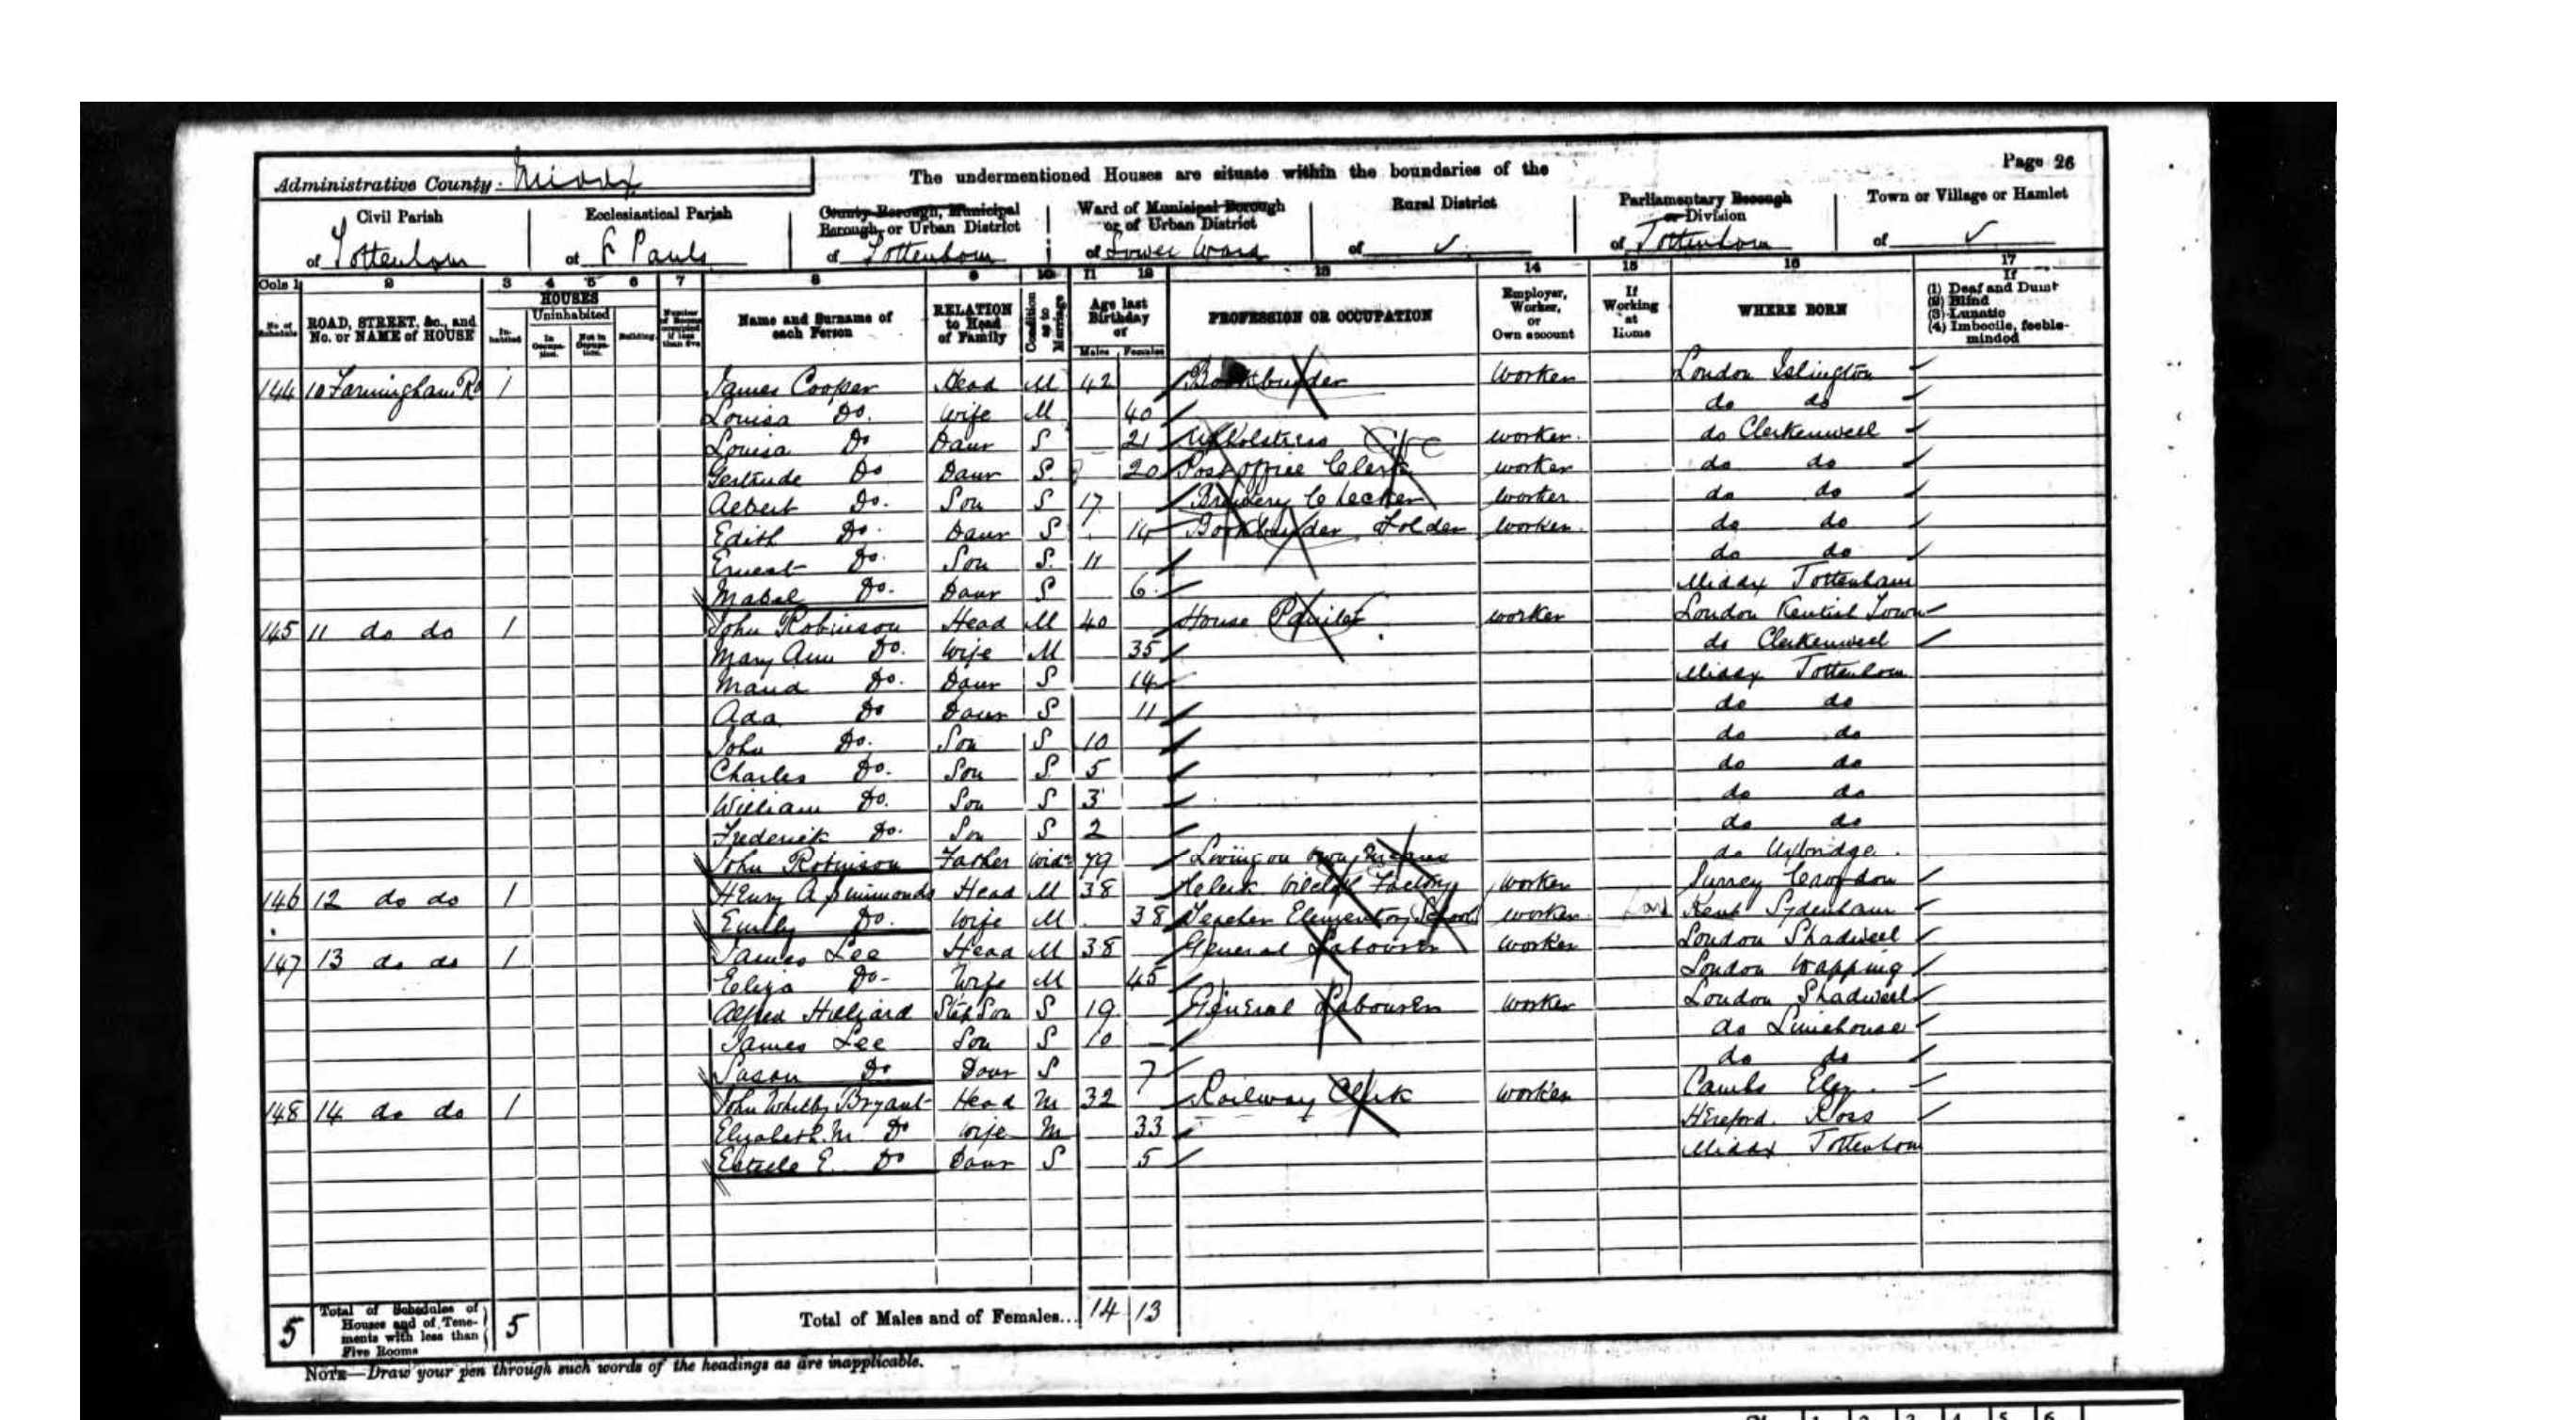 Page 26
Administrative County Middx The undermentioned Houses are situate within the boundaries of the
Civil Parish Ecclesiastical Parish County Borough, Municipal Borough, or Urban District Ward of Municipal Borough or of Urban District Rural District Parliamentary Borough or Division Town or Village or Hamlet
of Tottenham of St Pauls of Tottenham of Lower Ward of ✓ of Tottenham of ✓
Cols 1 2 3 4 5 6 7 8 9 10 11 12 13 14 15 16 17
No. of Schedule ROAD, STREET, &c., and No. or NAME of HOUSE HOUSES Inhabited Uninhabited In Occupation. Not in Occupation. Building. Number of Rooms occupied if less than five Name and Surname of each Person RELATION to Head of Family Condition as to Marriage Age last Birthday of Males Females PROFESSION OR OCCUPATION Employer, Worker, or Own account If Working at Home WHERE BORN If (1) Deaf and Dumb (2) Blind (3) Lunatic (4) Imbecile, feeble-minded
144 10 Farningham Rd 1 James Cooper Head M 42 Bookbinder Worker London Islington
Louisa Do. Wife M 40 do do
Louisa Do Daur S 21 Upholstress worker. do Clerkenwell
Gertrude Do Daur S. 20 Post office Clerk worker do do
Albert Do. Son S 17 Brewery Checker worker do do
Edith Do. Daur S 14 Bookbinder Folder worker. do do
Ernest Do. Son S. 11 do do
Mabel Do. Daur S 6 Middx Tottenham
145 11 do do 1 John Robinson Head M 40 House Painter worker London Kentish Town
Mary Ann Do. Wife M 35 do Clerkenwell
Maud Do. Daur S 14 Middx Tottenham
Ada Do Daur S 11 do do
John Do. Son S 10 do do
Charles Do. Son S. 5 do do
William Do. Son S 3 do do
Frederick Do. Son S 2 do do
John Robinson Father Widr 79 Living on own do Uxbridge.
146 12 do do 1 Henry A Simmonds Head M 38 Clerk Factory Worker Surrey Croydon
Emily Do. Wife M 38 Teacher Elementary School worker Kent Sydenham
147 13 do do 1 James Lee Head M 38 General Labourer Worker London Shadwell
Eliza Do- Wife M 45 London Wapping
Alfred Hilliard Step Son S 19 General Labourer Worker London Shadwell
James Lee Son S 10 do Limehouse
Do Daur S 7 do do
148 14 do do 1 John Bryant Head M 32 Railway Clerk Worker Cambs Ely.
Elizabeth M. Do Wife M 33 Hereford. Ross
E. Do Daur S 5 Middx Tottenham
5 Total of Schedules of Houses and of Tenements with less than Five Rooms 5 Total of Males and of Females... 14 13
NOTE—Draw your pen through such words of the headings as are inapplicable.
1 2 3 4 5 6